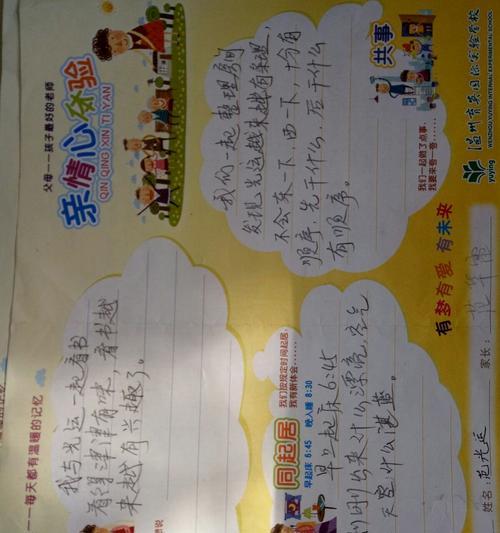 父母——孩子最好的老师
亲情心体验
QIN QING XIN TI YAN
我们一起整理房间
发现光运越来越有条理，
不会东一下，西一下，均有
顺序先干什么，后干什么
有顺序。
共事
我们一起做了点事，
我要来夸一夸……
温州育英国际实验学校
WENZHOU YUYING INTERNATIONAL EXPERIMENTAL SCHOOL
yuying
有梦 有爱 有未来
——每天都有温暖的记忆
我与光运一起看书
看得津津有味，看书越
来越有兴趣了。
我们按规定时间起居，
我有新体会……
同起居
早起床 6:45 晚入睡 8:30
早上起床6:45
刚出来什么漂亮，空气
天空什么湛蓝。
家长：
姓名：范光运